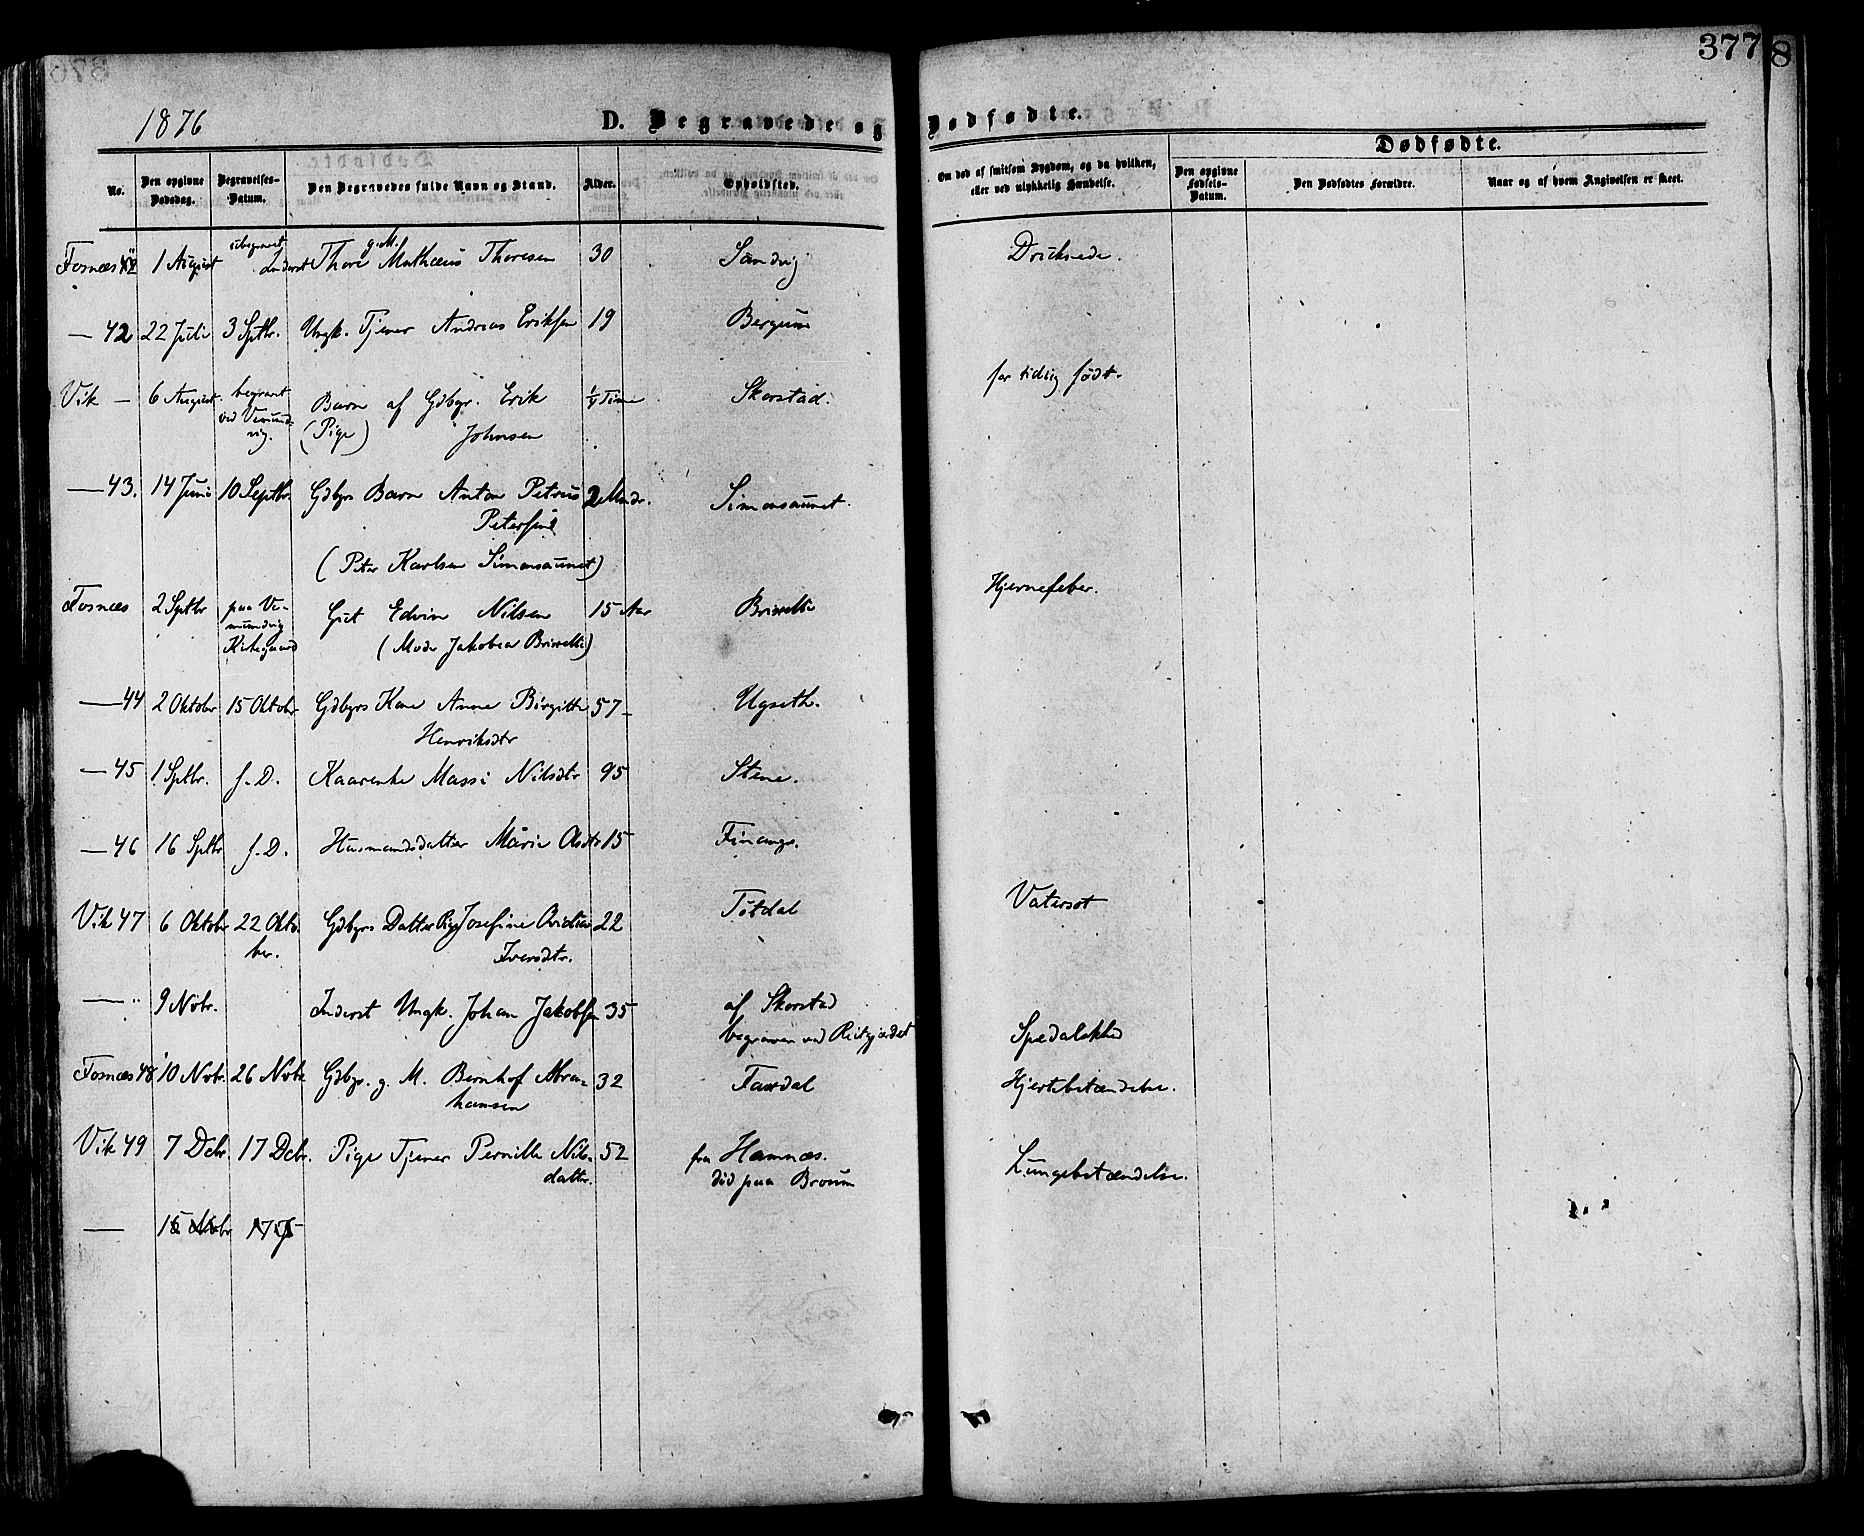 377
8
1876
D. Begravede og Dødfødte.
Dødfødte.
No.
Den opgivne Dødsdag.
Begravelses-Datum.
Den Begravedes fulde Navn og Stand.
Alder.
Opholdssted.
Om død af smitsom Sygdom, og da hvilken, eller ved ulykkelig Hændelse.
Den opgivne Fødsels-Datum.
Den Dødfødtes Forældre.
Naar og af hvem Angivelsen er skeet.
Fosnæs 1 August ubegravet Inderst g. M. Thore Mathæus Thoresen 30 Sandvig Druknede.
— 42 22 Juli 3 Septbr. Ungk. Tjener Andreas Eriksen 19 Bergum
Vik — 6 August begravet Barn af Gdbgr. Erik ¼ Time Skorstad. for tidlig født.
ved Vemundvig. (Pige) Johnsen
— 43. 14 Juni 10 Septbr. Gdbgrs Barn Anton Petrus 2 Mndr. Simonsaunet.
Petersen
(Peter Karlsen Simonsaunet)
Fosnæs 2 Septbr paa Ve- Gut Edvin Nilsen 15 Aar Hjernefeber.
mundvig
Kirkegaard (Moder Jakobea
— 44 2 Oktobr 15 Oktobr Gdbgrs Kone Anne Birgitte 57 - Ugseth.
Henriksdtr
— 45 1 Septbr. f. D. Kaarenke Massi Nilsdtr 95 Stene.
— 46 16 Septbr f. D. Husmandsdatter Marie Olsdtr 15 Finanger.
Vik 47 6 Oktobr 22 Okto- Gdbgrs Datter Pige Josefine 22 Tøtdal Vatersot
ber. Iversdtr.
— " 9 Nobr. Inderst Ungk. Johan Jakobsen 35 af Skorstad
begraven ved Reitgjærdet Spedalskhed
Fosnæs 48 10 Nobr. 26 Nobr Gdbgr. g. M. Bernhof Abra- 32 Faardal Hjertebetændelse.
hamsen
Vik 49 7 Decbr. 17 Decbr. Pige Tjener Pernille Nils- 52 fra Hamnæs. Lungebetændelse.
datter. død paa Broum
— 15 Nobr